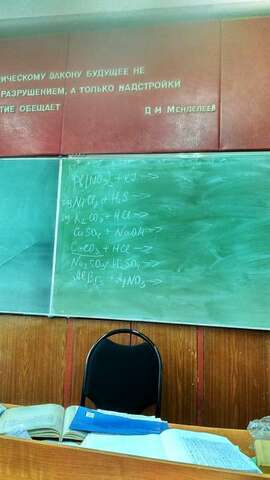 ИЧЕСКОМУ ЗАКОНУ БУДУЩЕЕ НЕ
РАЗРУШЕНИЕМ, А ТОЛЬКО НАДСТРОЙКИ
ТИЕ ОБЕЩАЕТ Д И МЕНДЕЛЕЕВ
Pb(NO3)2 + KJ →
NiCl2 + H2S →
K2CO3 + HCl →
CuSO4 + NaOH →
CaCO3 + HCl →
Na2SO3 + H2SO4 →
AlBr3 + AgNO3 →